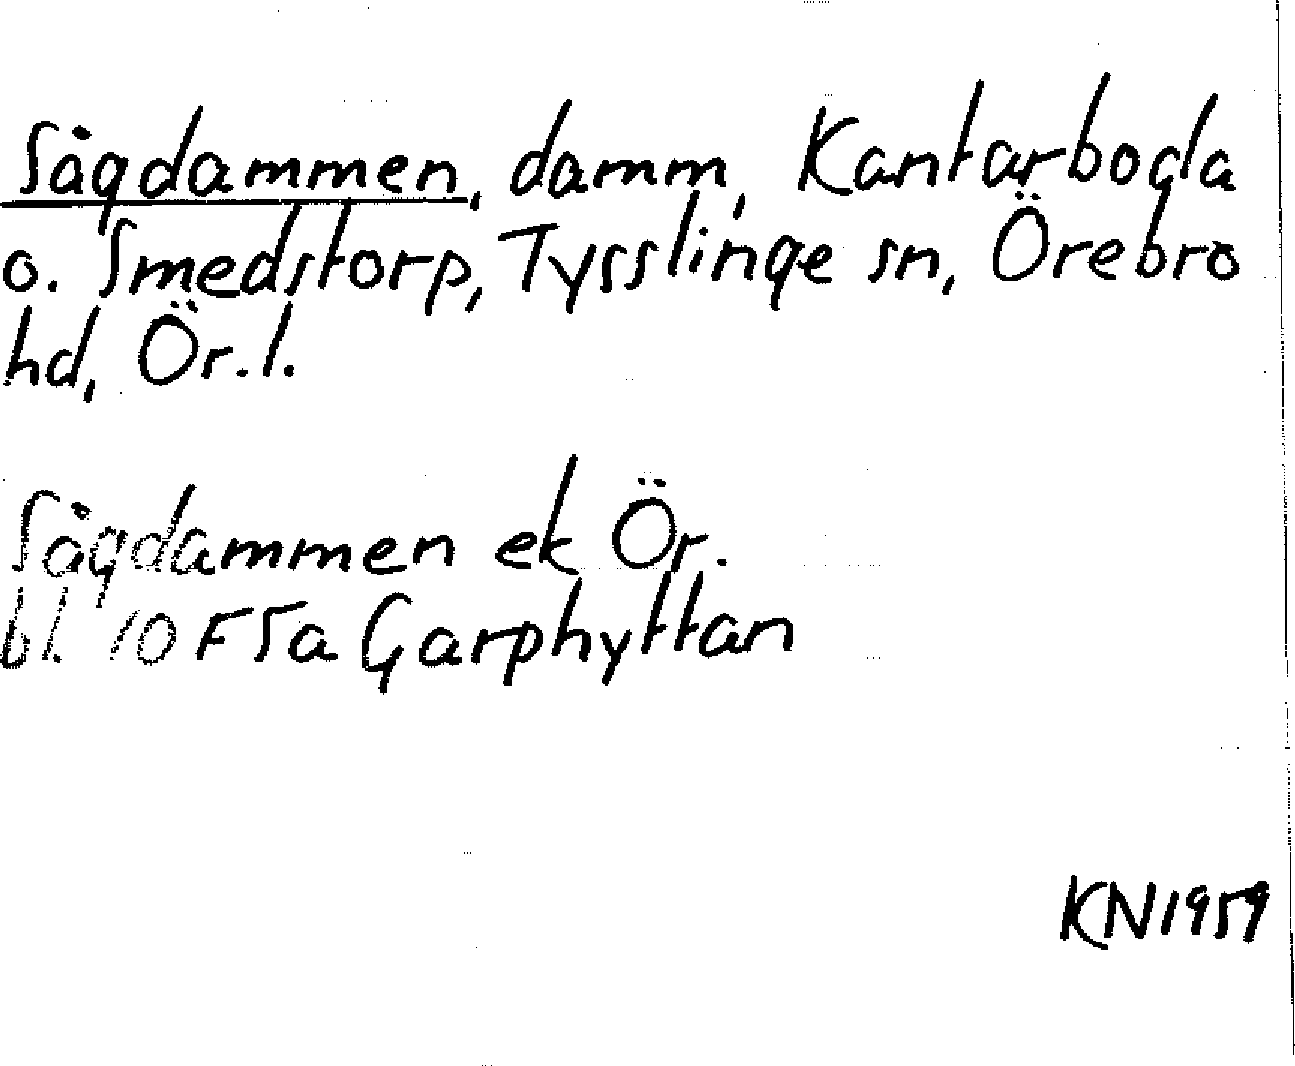 Sågdammen, damm, Kantarboda
o. Smedstorp, Tysslinge sn, Örebro
hd, Ör. l.
Sågdammen ek Ör.
bl. 10 F 5a Garphyttan
KN 1959